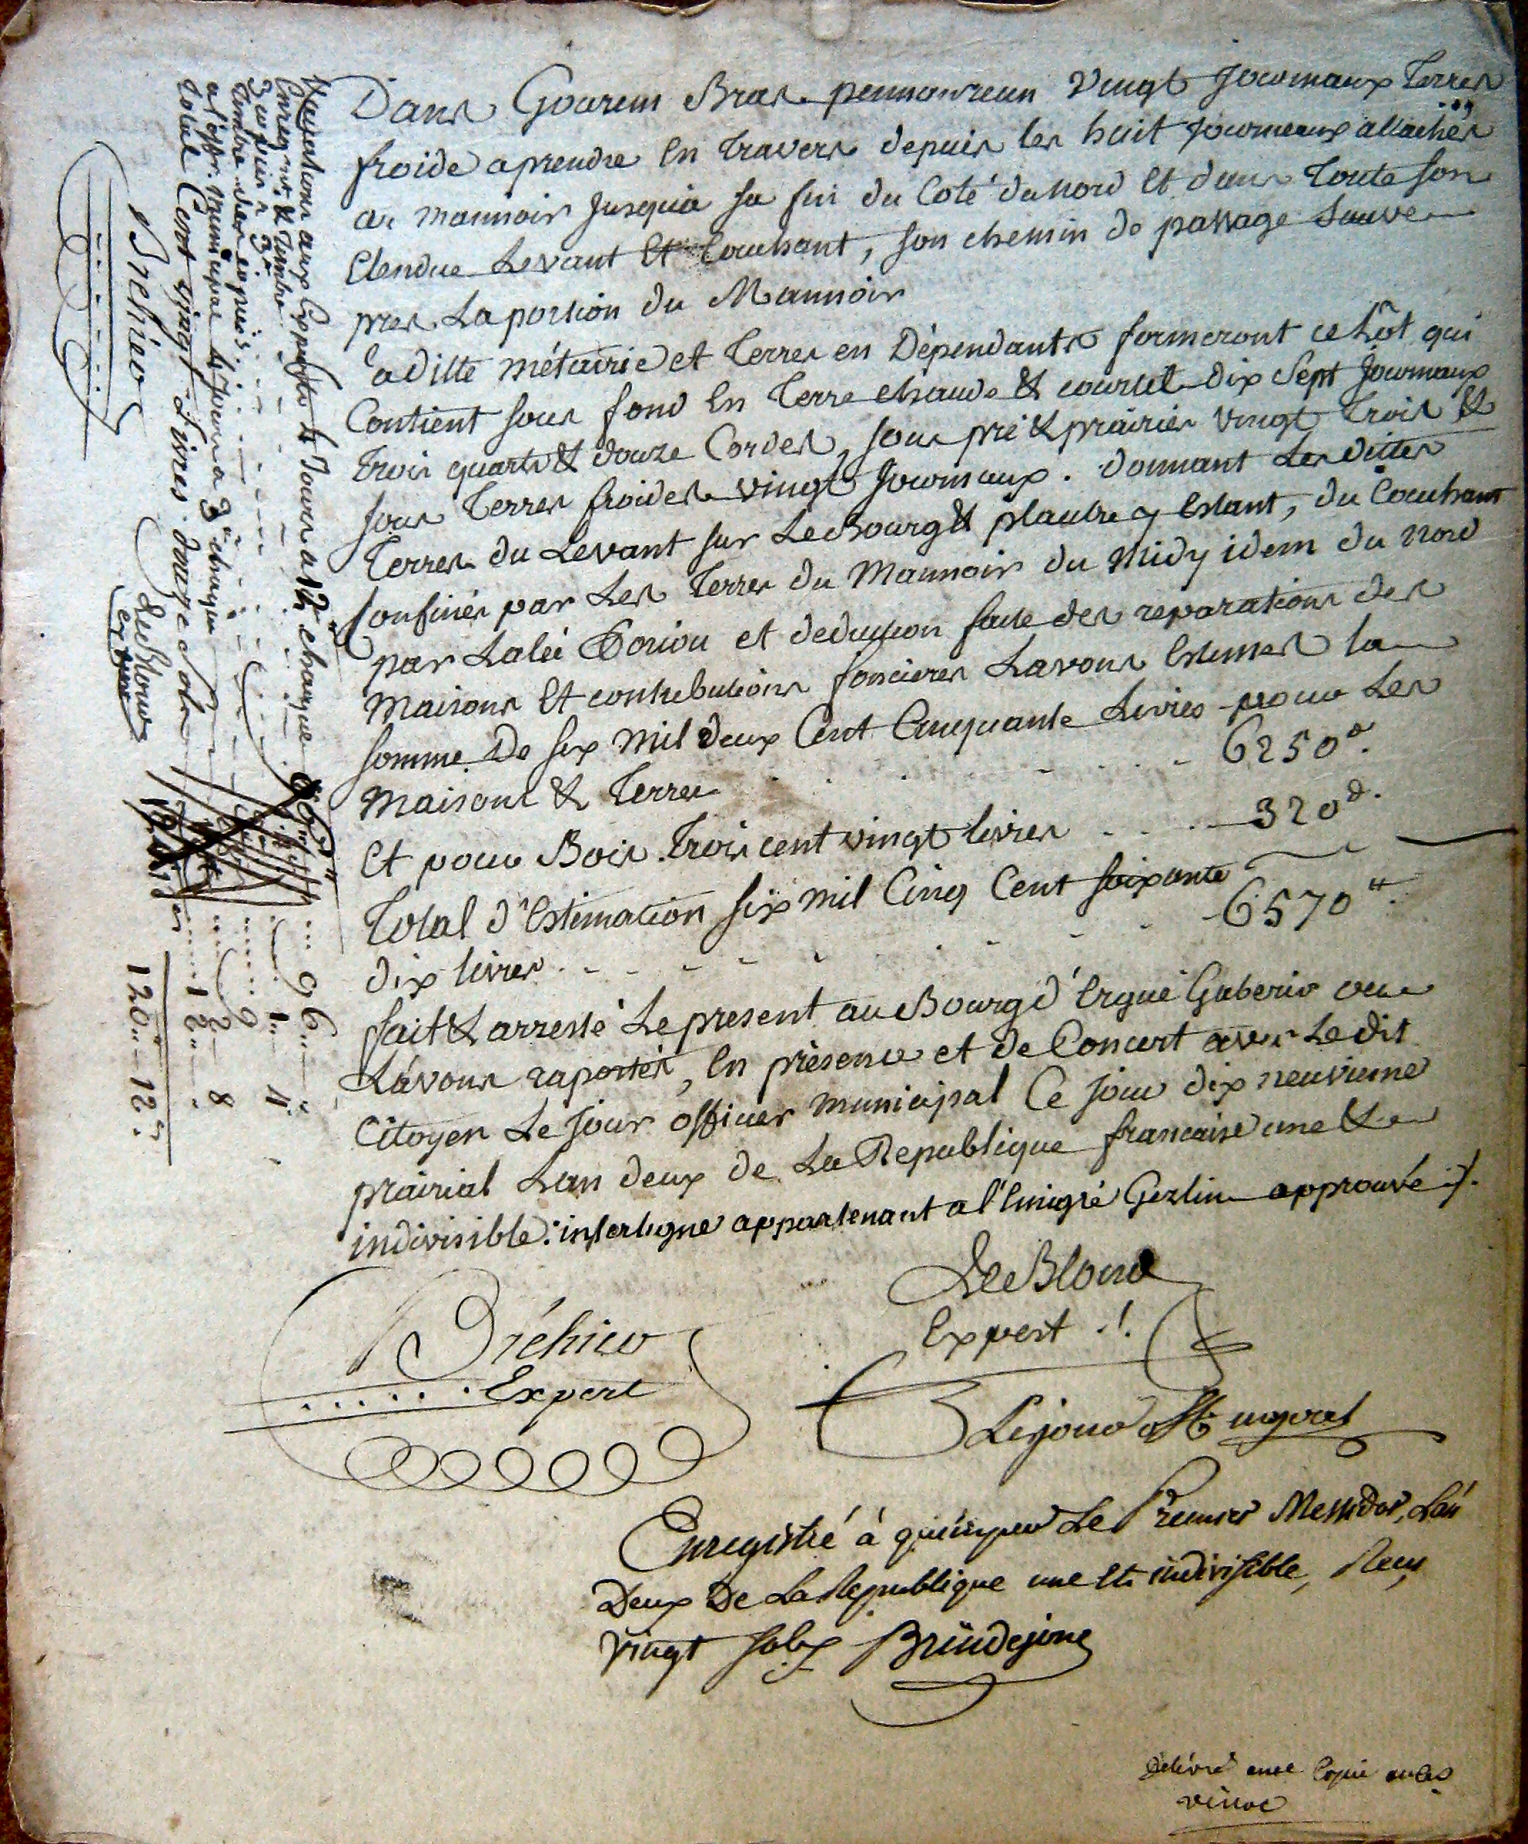 Dans Gourem Bras pennanreun vingt Journaux Terres
froide aprendre En Travers depuis les huit Journeaux attachés
au mannoir Jusqua sa fin du Coté du Nord Et dans Toute son
Etendue Levant Et Couchant, son chemin de passage Sauve
pres La portion du Mannoir
Laditte métairie et Terres en Dépendants formeront ce Lôt qui
Contient sous fond En Terre chaude & courtil dix Sept Journaux
Trois quarts & douze Cordes, sous pré & prairies vingt Trois &
sous Terres froides vingt Journaux. donnant Les dittes
Terres du Levant sur Le Bourg & placitre y Estant, du Couchant
Confinés par Les Terres du Mannoir du Midy idem du Nord
par Lalée Coriou et deduction faite des reparations des
Maisons Et contributions foncieres Lavons Estimés la
somme De six Mil deux Cent Cinquante Livres pour Les
Maisons & Terres . . . . . . . 6250tt.
Et pour Bois Trois cent vingt livres . . . . 320tt.
Total d'Estimation six mil Cinq Cent soixante
dix livres . . . . . . 6570tt.
fait & arresté Le present au Bourg d'Ergué Gaberic ou
Lavons raportés, En présence et de Concert avec Ledit
Citoyen Le Jour officier municipal Ce Jour dix neuvieme
prairial Lan deux de La Republique francaise une &
indivisible: interligne appartenant a l'Emigré Gezlin approuvé ./.
Le Blond
Expert ./.
Bréhier
Expert
Lejour off. mupal
Enregistré à quimper Le Premier Messidor, Lan
Deux De La Republique une Et indivisible, Recu
Vingt sols Brindejonc
delivré une Copie
Vacations aux Experts 4 Jours a 12tt chaque . . . 96" "
Enreg.nt & Timbre . . . 1" 4"
Timbre des copies . . . 9
a l'off. Municipal 4 Jours a 3tt chaque . . . 12"
Total Cent vingt Livres douze sols . . . 120" 12s
Brehier
Le Blond
expert